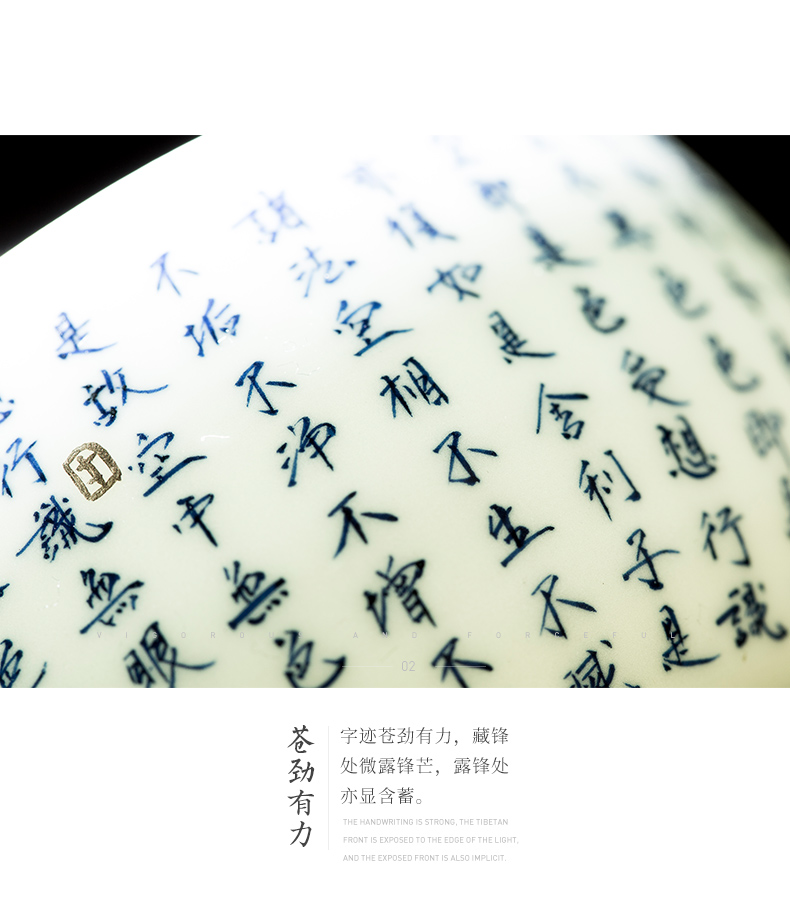 色色即
即是色受想行識
亦復如是舍利子是
諸法空相不生不滅
不垢不淨不增不
是故空中無色
行識無眼
色
VIGORO AND FORCEFUL
02
苍劲有力
字迹苍劲有力，藏锋
处微露锋芒，露锋处
亦显含蓄。
THE HANDWRITING IS STRONG, THE TIBETAN
FRONT IS EXPOSED TO THE EDGE OF THE LIGHT,
AND THE EXPOSED FRONT IS ALSO IMPLICIT.